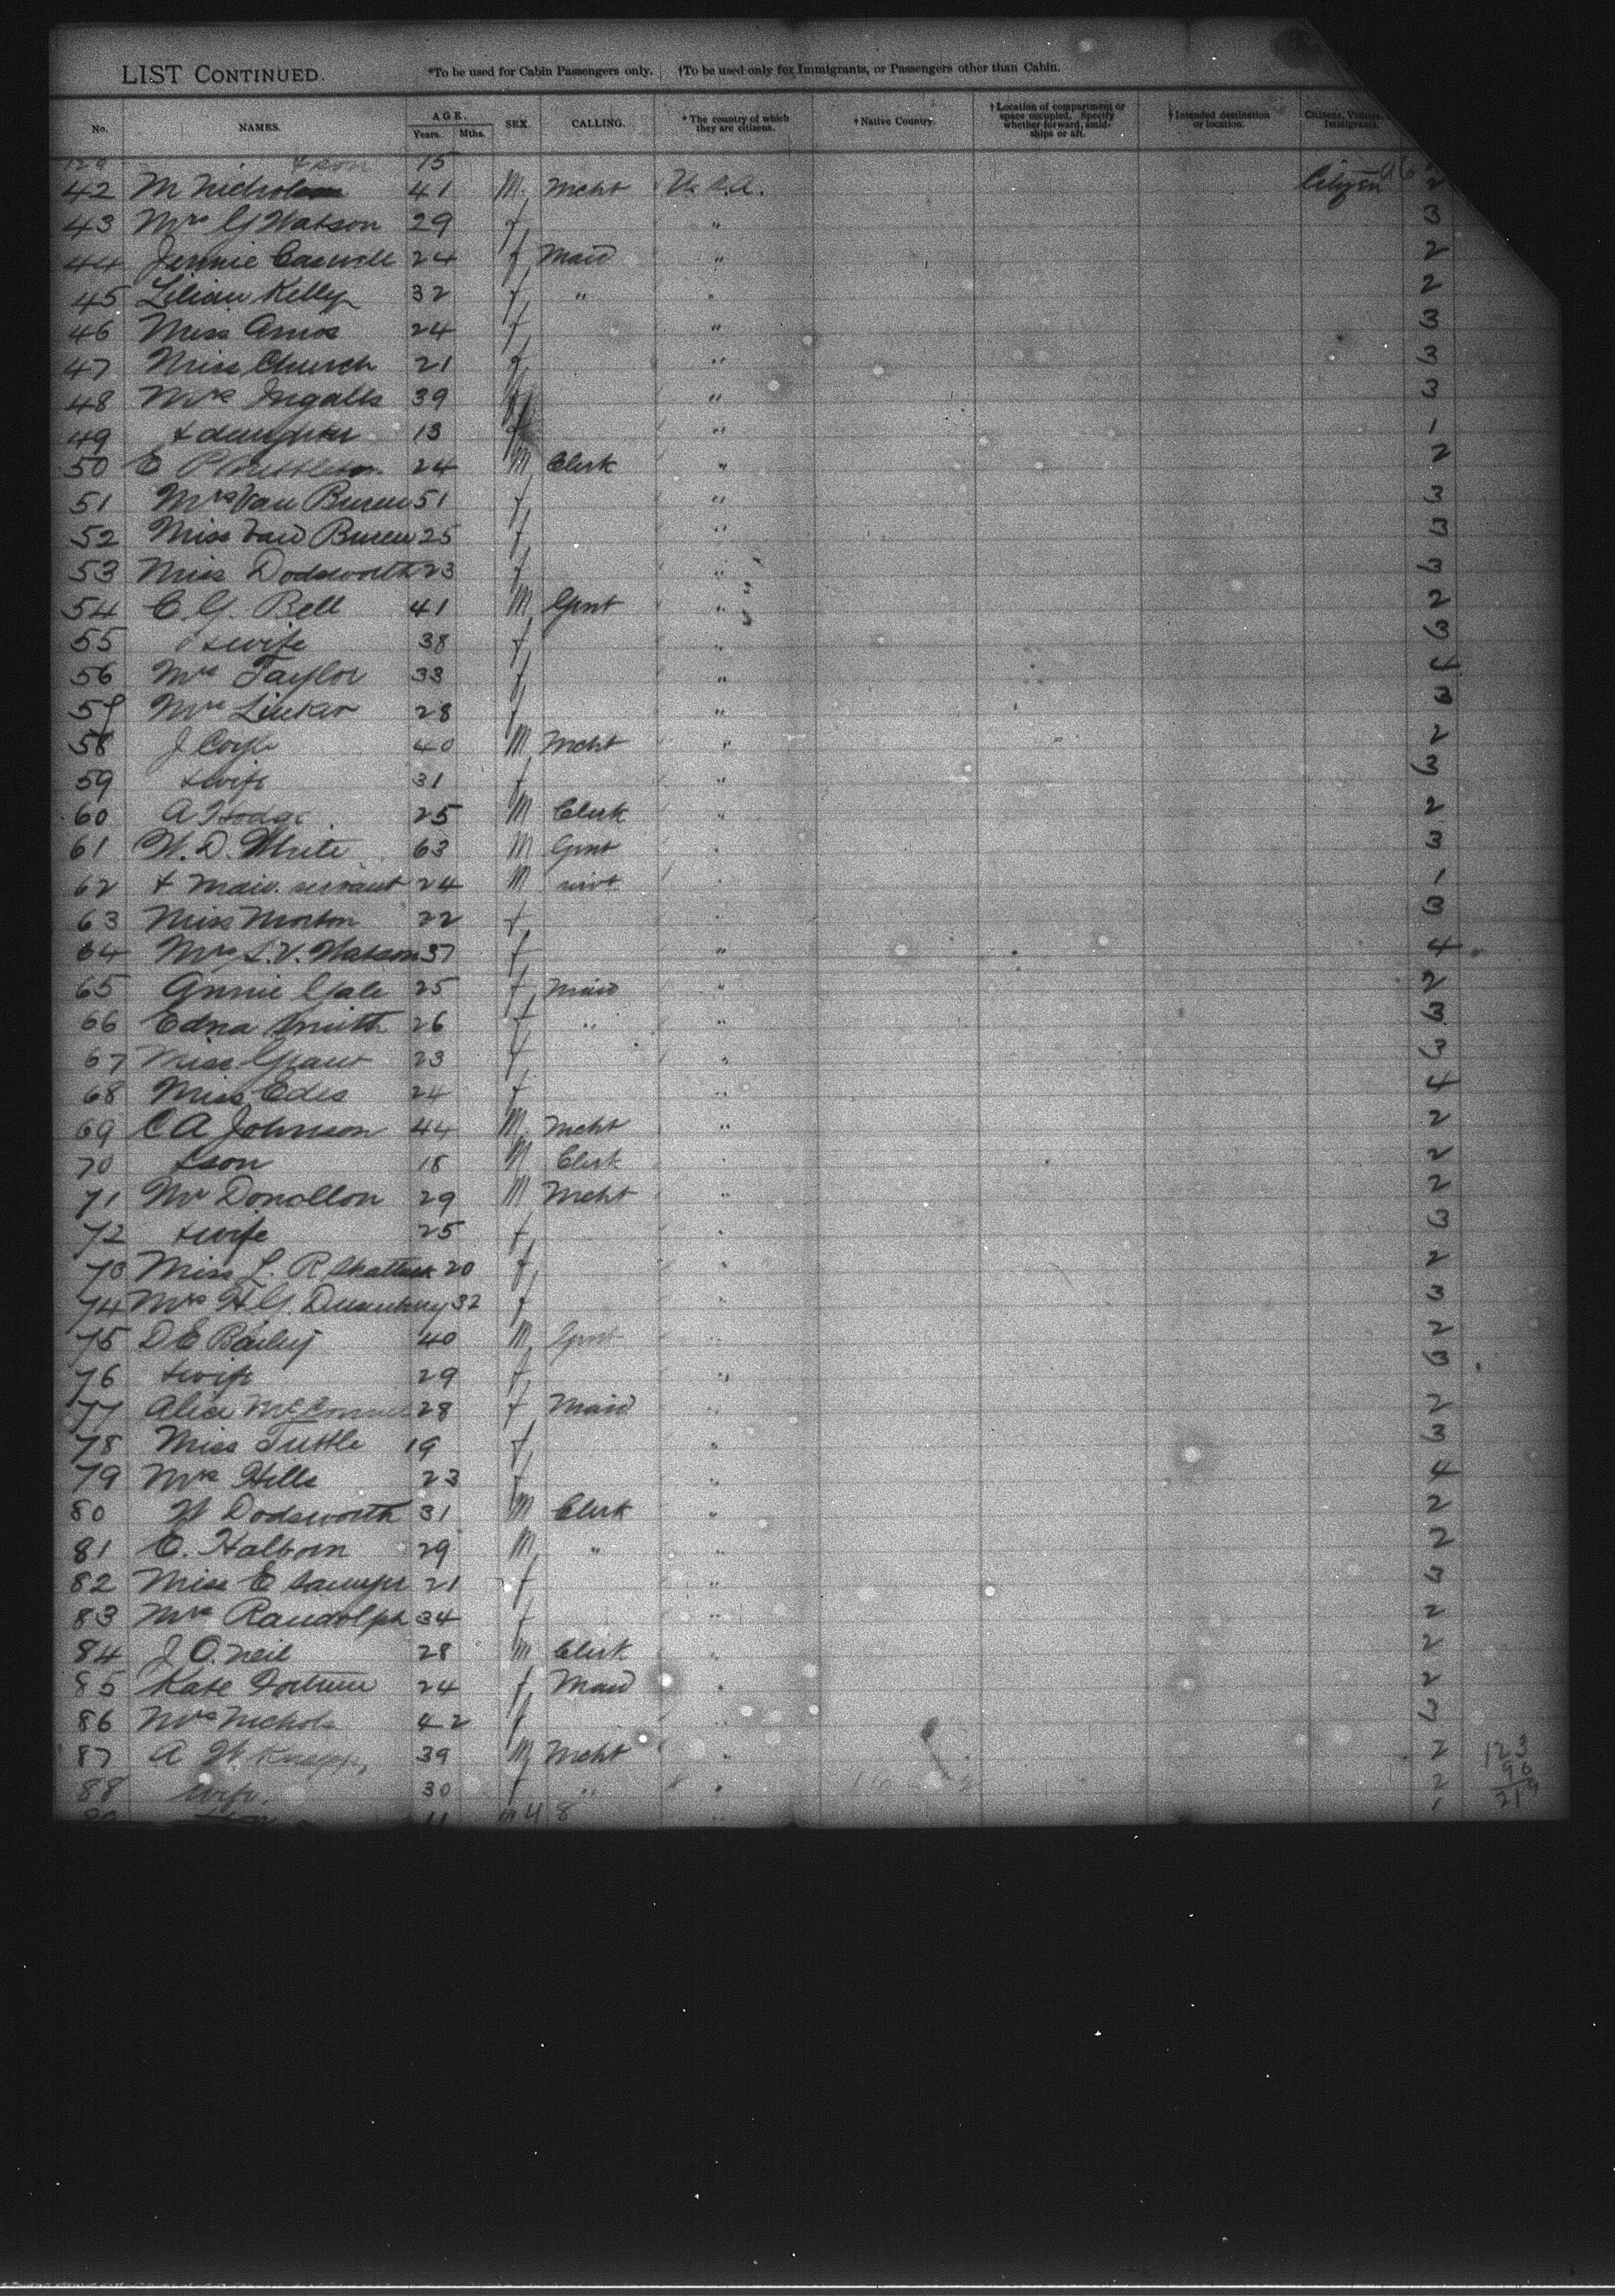 LIST CONTINUED. *To be used for Cabin Passengers only. †To be used only for Immigrants, or Passengers other than Cabin.
No. NAMES. AGE. Years. Mths. SEX. CALLING. * The country of which they are citizens. † Native Country. † Location of compartment or space occupied. Specify whether forward, amid-ships or aft. † Intended destination or location. Citizens, Visitors, Immigrants.
& son 15
42 M Nichols 41 M. Mcht U.S.A. Citizen 96 2
43 Mrs G Watson 29 f " 3
44 Jennie 24 f Maid " 2
45 Lilian Kelly 32 f " " 2
46 Miss Amos 24 f " 3
47 Miss Church 21 f " 3
48 Mrs Ingalls 39 f " 3
49 & daughter 13 f " 1
50 E P 24 M Clerk " 2
51 Mrs Van Buren 51 f " 3
52 Miss Van Buren 25 f " 3
53 Miss Dodsworth 23 f " 3
54 C. G. Bell 41 M Gent " 2
55 & wife 38 f " 3
56 Mrs Taylor 33 f " 4
57 Mrs 28 f " 3
58 J 40 M Mcht " 2
59 & wife 31 f " 3
60 A Hodge 25 M Clerk " 2
61 W. D. White 63 M Gent " 3
62 & servant 24 M srvt " 1
63 Miss Morton 22 f " 3
64 Mrs S. V. Watson 37 f " 4
65 Annie Gale 25 f Maid " 2
66 Edna Smith 26 f " " 3
67 Miss Grant 23 f " 3
68 Miss Edes 24 f " 4
69 C A Johnson 44 M. Mcht " 2
70 & son 18 M Clerk " 2
71 Mr Donallon 29 M Mcht " 2
72 & wife 25 f " 3
73 Miss L. R Shattuck 20 f " 2
74 Mrs H G. 32 f " 3
75 D E Bailey 40 M Gent " 2
76 & wife 29 f " 3
77 Alice McConnell 28 f Maid " 2
78 Miss Tuttle 19 f " 3
79 Mrs Hills 23 f " 4
80 W Dodsworth 31 M Clerk " 2
81 E. Halborn 29 M " " 2
82 Miss E Sawyer 21 f " 3
83 Mrs Randolph 34 f " 2
84 J O. Neil 28 M Clerk " 2
85 Kate Fortune 24 f Maid " 2
86 Mrs Nichols 42 f " 3
87 A W Knapp, 39 M Mcht " 2 123
88 wife. 30 f " " 2 96
89 & son 11 M 48 " 1 219